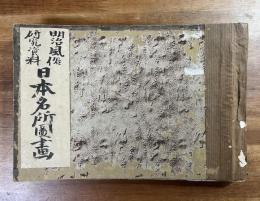 明治風俗
研究資料
日本名所圖画